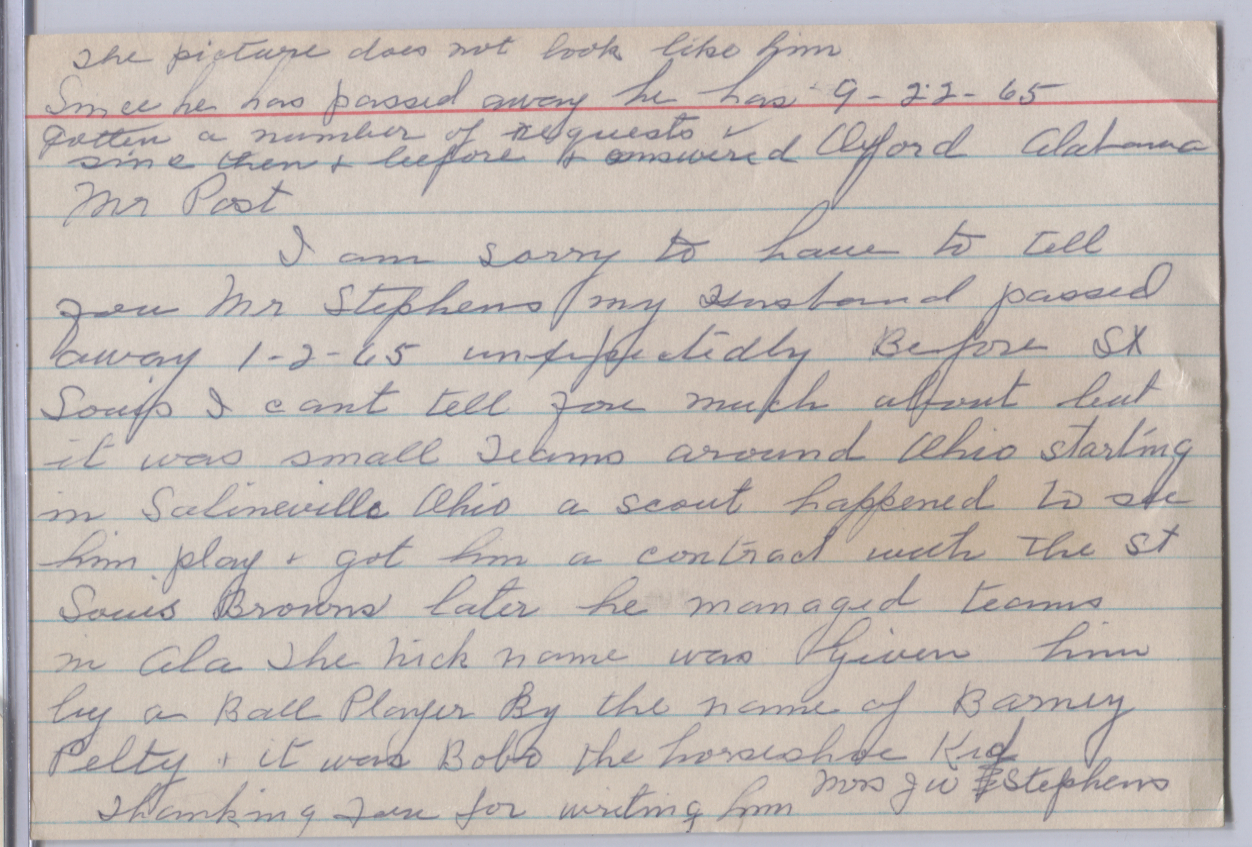 The picture does not look like him
Since he has passed away he has 9-22-65
gotten a number of requests &
since then & before & answered Oxford Alabama
Mr Post
I am sorry to have to tell
you Mr Stephens my Husband passed
away 1-2-65 unexpectedly Before St
Louis I cant tell you much about but
it was small Teams around Ohio starting
in Salineville Ohio a scout happened to see
him play & got him a contract with The St
Louis Browns later he managed teams
in Ala The Nick name was Given him
by a Ball Player By the name of Barney
Pelty & it was Bobo the horseshoe Kid
Thanking you for writing him Mrs J W Stephens